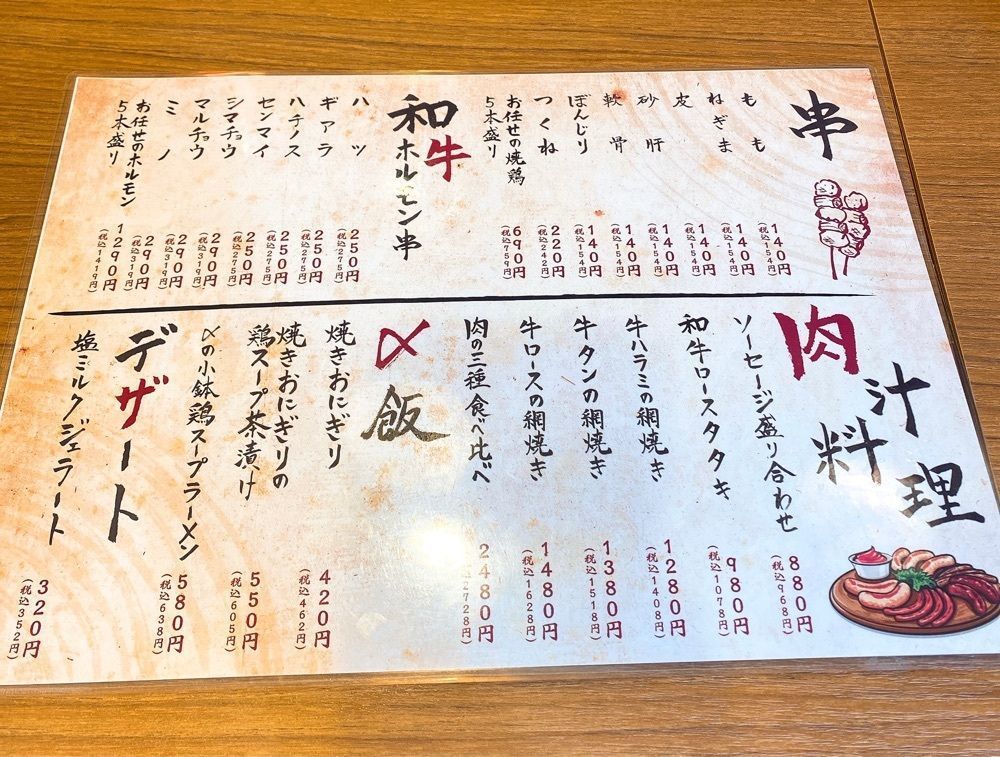 串
もも
140円
(税込154円)
ねぎま
140円
(税込154円)
皮
140円
(税込154円)
砂肝
140円
(税込154円)
軟骨
140円
(税込154円)
ぼんじり
140円
(税込154円)
つくね
220円
(税込242円)
お任せの焼鶏
5本盛り
690円
(税込759円)
和牛ホルモン串
ハツ
250円
(税込275円)
ギアラ
250円
(税込275円)
ハチノス
250円
(税込275円)
センマイ
250円
(税込275円)
シマチョウ
290円
(税込319円)
マルチョウ
290円
(税込319円)
ミノ
290円
(税込319円)
お任せのホルモン
5本盛り
1290円
(税込1419円)
肉汁料理
ソーセージ盛り合わせ
880円
(税込968円)
和牛ロースタタキ
980円
(税込1078円)
牛ハラミの網焼き
1280円
(税込1408円)
牛タンの網焼き
1380円
(税込1518円)
牛ロースの網焼き
1480円
(税込1628円)
肉の三種食べ比べ
2480円
(税込2728円)
〆飯
焼きおにぎり
420円
(税込462円)
焼きおにぎりの
鶏スープ茶漬け
550円
(税込605円)
〆の小鉢鶏スープラーメン
580円
(税込638円)
デザート
塩ミルクジェラート
320円
(税込352円)